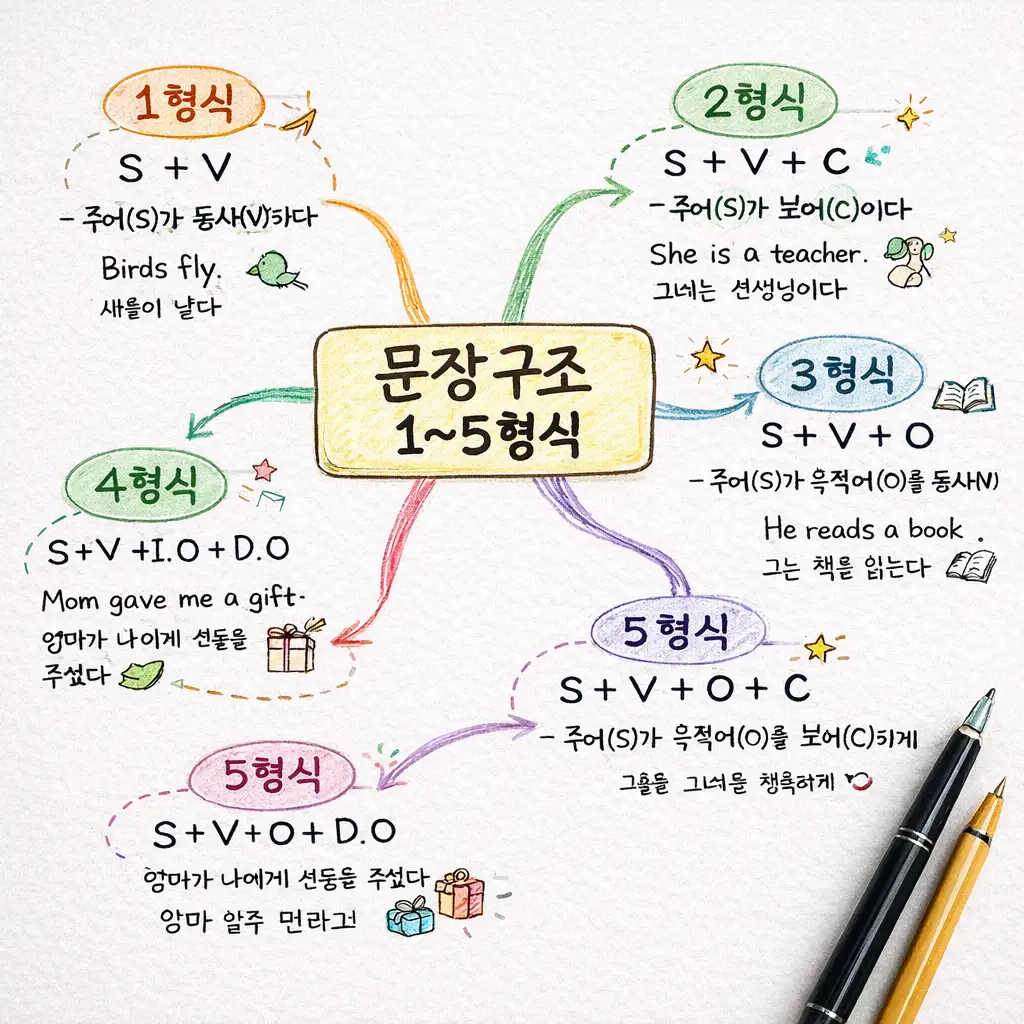 1형식
S + V
- 주어(S)가 동사(V)하다
Birds fly.
새들이 날다
2형식
S + V + C
- 주어(S)가 보어(C)이다
She is a teacher.
그네는 선생님이다
문장구조
1~5형식
3형식
S + V + O
- 주어(S)가 목적어(O)를 동사
He reads a book .
그는 책을 읽는다
4형식
S+V+I.O+D.O
Mom gave me a gift.
엄마가 나이게 선물을
주셨다
5형식
S + V + O + C
- 주어(S)가 목적어(O)를 보어(C)하게
그네를
5형식
S+V+O+D.O
엄마가 나에게 선둥을 주셨다
앙마 알주 먼라고